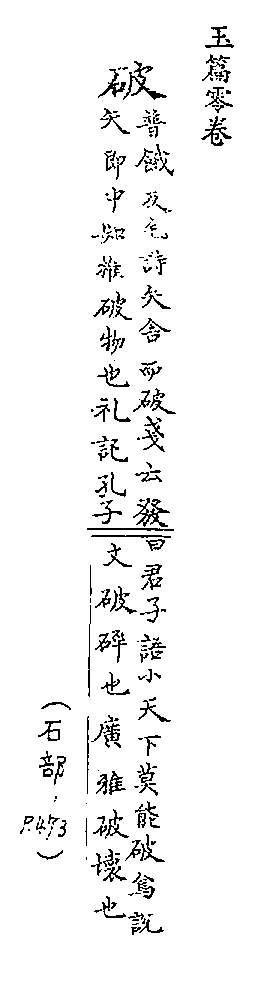 玉篇零卷
破
普餓反毛詩矢舍而破戔云發
矢即中如椎破物也礼記孔子
曰君子語小天下莫能破焉說
文破碎也廣雅破壞也
(石部,P.473)